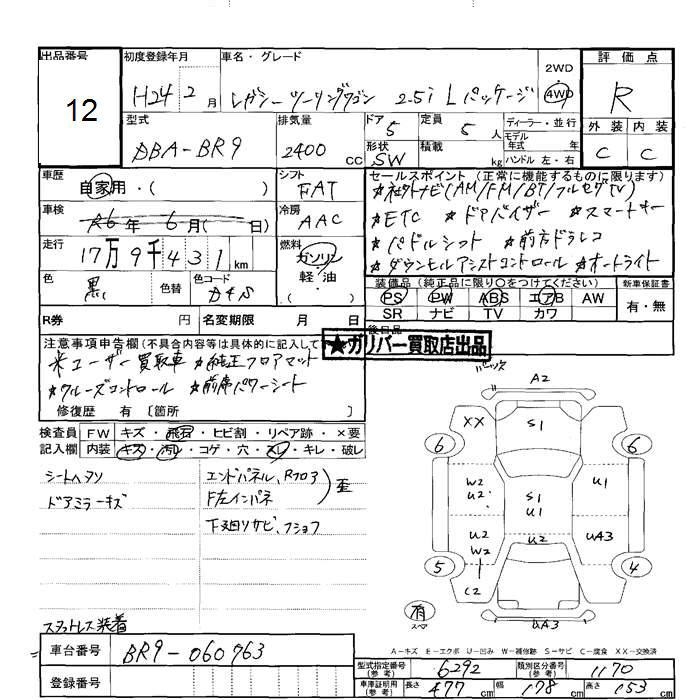 出品番号 初度登録年月 車名・グレード 2WD 評価点
12 H24 2月 レガシーツーリングワゴン 2.5i Lパッケージ 4WD R
型式 排気量 ドア 5 定員 5人 ディーラー・並行 外装 内装
DBA-BR9 2400cc 形状 SW 積載 kg モデル年式 年式 C C
ハンドル 左・右
車歴 シフト セールスポイント(正常に機能するものに限ります)
自家用・( ) FAT ☆社外ナビ(AM/FM/BT/フルセグTV)
車検 冷房 ☆ETC ☆ドアバイザー ☆スマートキー
R6年 6月( 日) AAC ☆パドルシフト ☆前方ドラレコ
走行 燃料 ☆ダウンヒルアシストコントロール ☆オートライト
17万9千431km ガソリン
色 色替 色コード 軽・油 装備品(純正品に限り○をつけてください) 新車保証書
黒 D4S ・( ) PS PW ABS エアB AW 有・無
SR ナビ TV カワ
R券 円 名変期限 月 日 後日品
注意事項申告欄(不具合内容等は具体的に記入して
★ガリバー買取店出品
※ユーザー買取車 ☆純正フロアマット
☆クルーズコントロール ☆前席パワーシート
修復歴 有〔箇所 〕
検査員 FW キズ・飛石・ヒビ割・リペア跡・×要
記入欄 内装 キズ・汚レ・コゲ・穴・スレ・キレ・破レ
シートヘタリ エンドパネル、Rフロア
ドアミラーキズ F左インパネ 歪
下廻リサビ、フショク
A2
XX S1
6 6
W2 U2 S1 U1 U1
U2 W2 U2 UA3
5 4
C2
有 スペア UA3
A-キズ E-エクボ U-凹み W-補修跡 S-サビ C-腐食 XX-交換済
スタットレス装着
車台番号 BR9-060763
登録番号
型式指定番号(参考) 6292 類別区分番号(参考) 1170
車庫証明用(参考) 長さ 477cm 幅 178cm 高さ 153cm